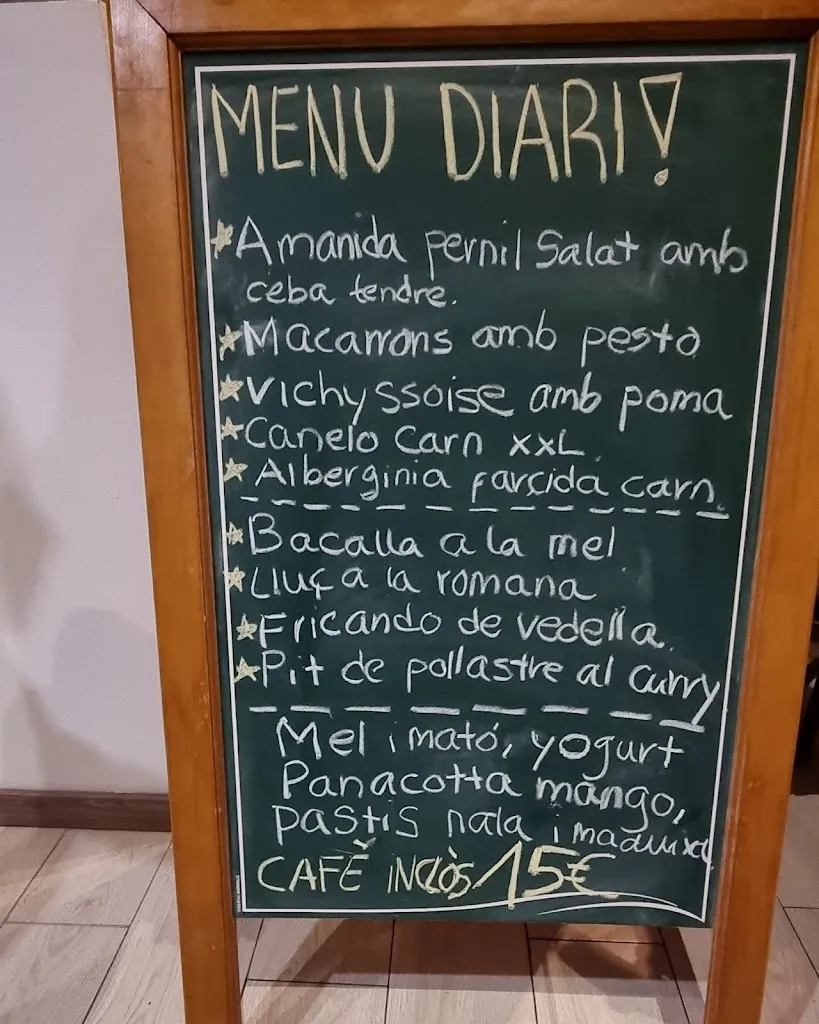 MENU DIARI!
Amanida pernil Salat amb
ceba tendre.
Macarrons amb pesto
Vichyssoise amb poma
Canelo Carn XXL.
Alberginia farcida carn.
Bacalla a la mel
Lluç a la romana
Fricando de vedella.
Pit de pollastre al curry
Mel i mató, yogurt
Panacotta mango,
pastis nata i maduixa
CAFÈ INCLÒS 15€